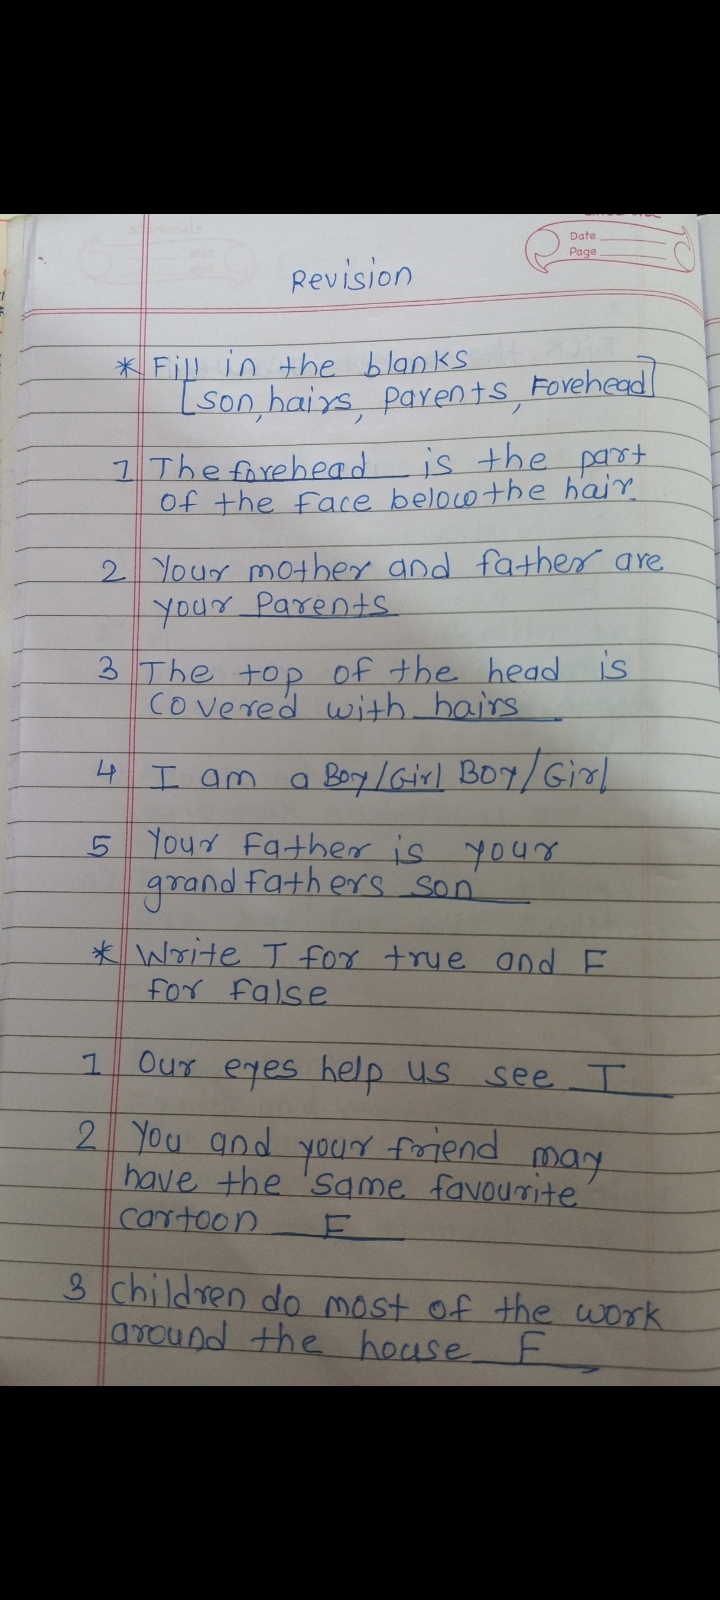 Date
Page
Revision
* Fill in the blanks
[son, hairs, parents, Forehead]
1 The forehead is the part
of the face below the hair.
2 Your mother and father are
your Parents
3 The top of the head is
covered with hairs
4 I am a Boy/Girl Boy/Girl
5 Your Father is your
grandfathers son
* Write T for true and F
for false
1 Our eyes help us see T
2 You and your friend may
have the same favourite
cartoon F
3 children do most of the work
around the house F